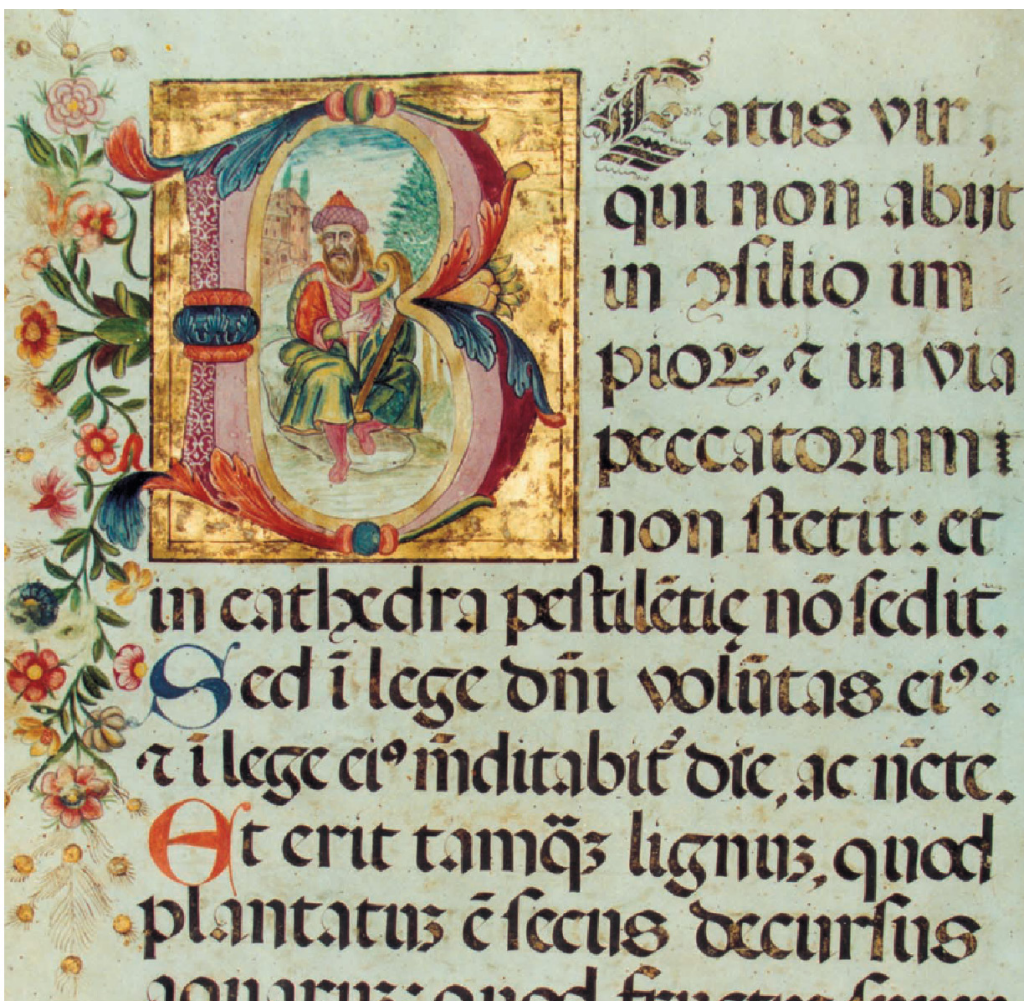 Beatus vir,
qui non abiit
in ꝯsilio im
pioꝝ, ⁊ in via
peccatorum
non stetit: et
in cathedra pestilẽtię nõ sedit.
Sed ĩ lege dñi volũtas eiꝰ:
⁊ ĩ lege eiꝰ m̃ditabit᷑ die, ac ncte.
Et erit tamq̃ꝫ lignuꝫ, quod
plantatuꝫ ẽ secus decursus
aquaruꝫ: quod fructum